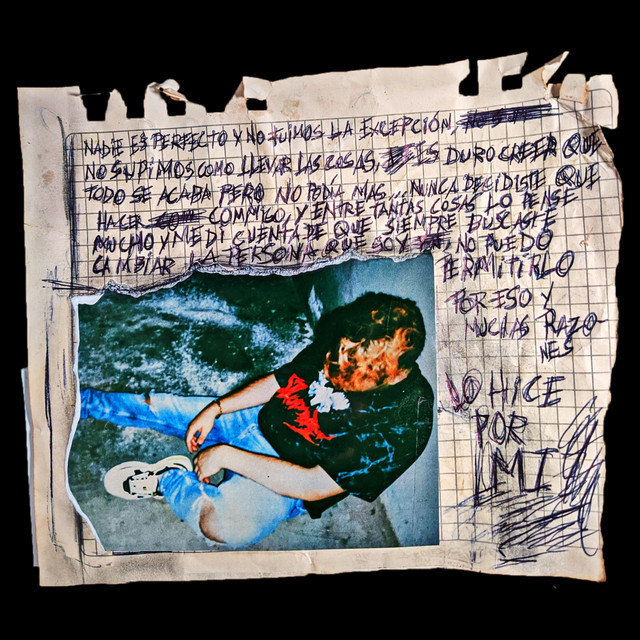 NADIE ES PERFECTO Y NO FUIMOS LA EXCEPCIÓN,
NO SUPIMOS COMO LLEVAR LAS COSAS, ES DURO CREER QUE
TODO SE ACABA PERO NO PODIA MAS, NUNCA DECIDISTE QUE
HACER CONMIGO, Y ENTRE TANTAS COSAS LO PENSE
MUCHO Y ME DI CUENTA DE QUE SIEMPRE BUSCASTE
CAMBIAR LA PERSONA QUE SOY Y NO PUEDO
PERMITIRLO
POR ESO Y
MUCHAS RAZO-
NES
LO HICE
POR
MI